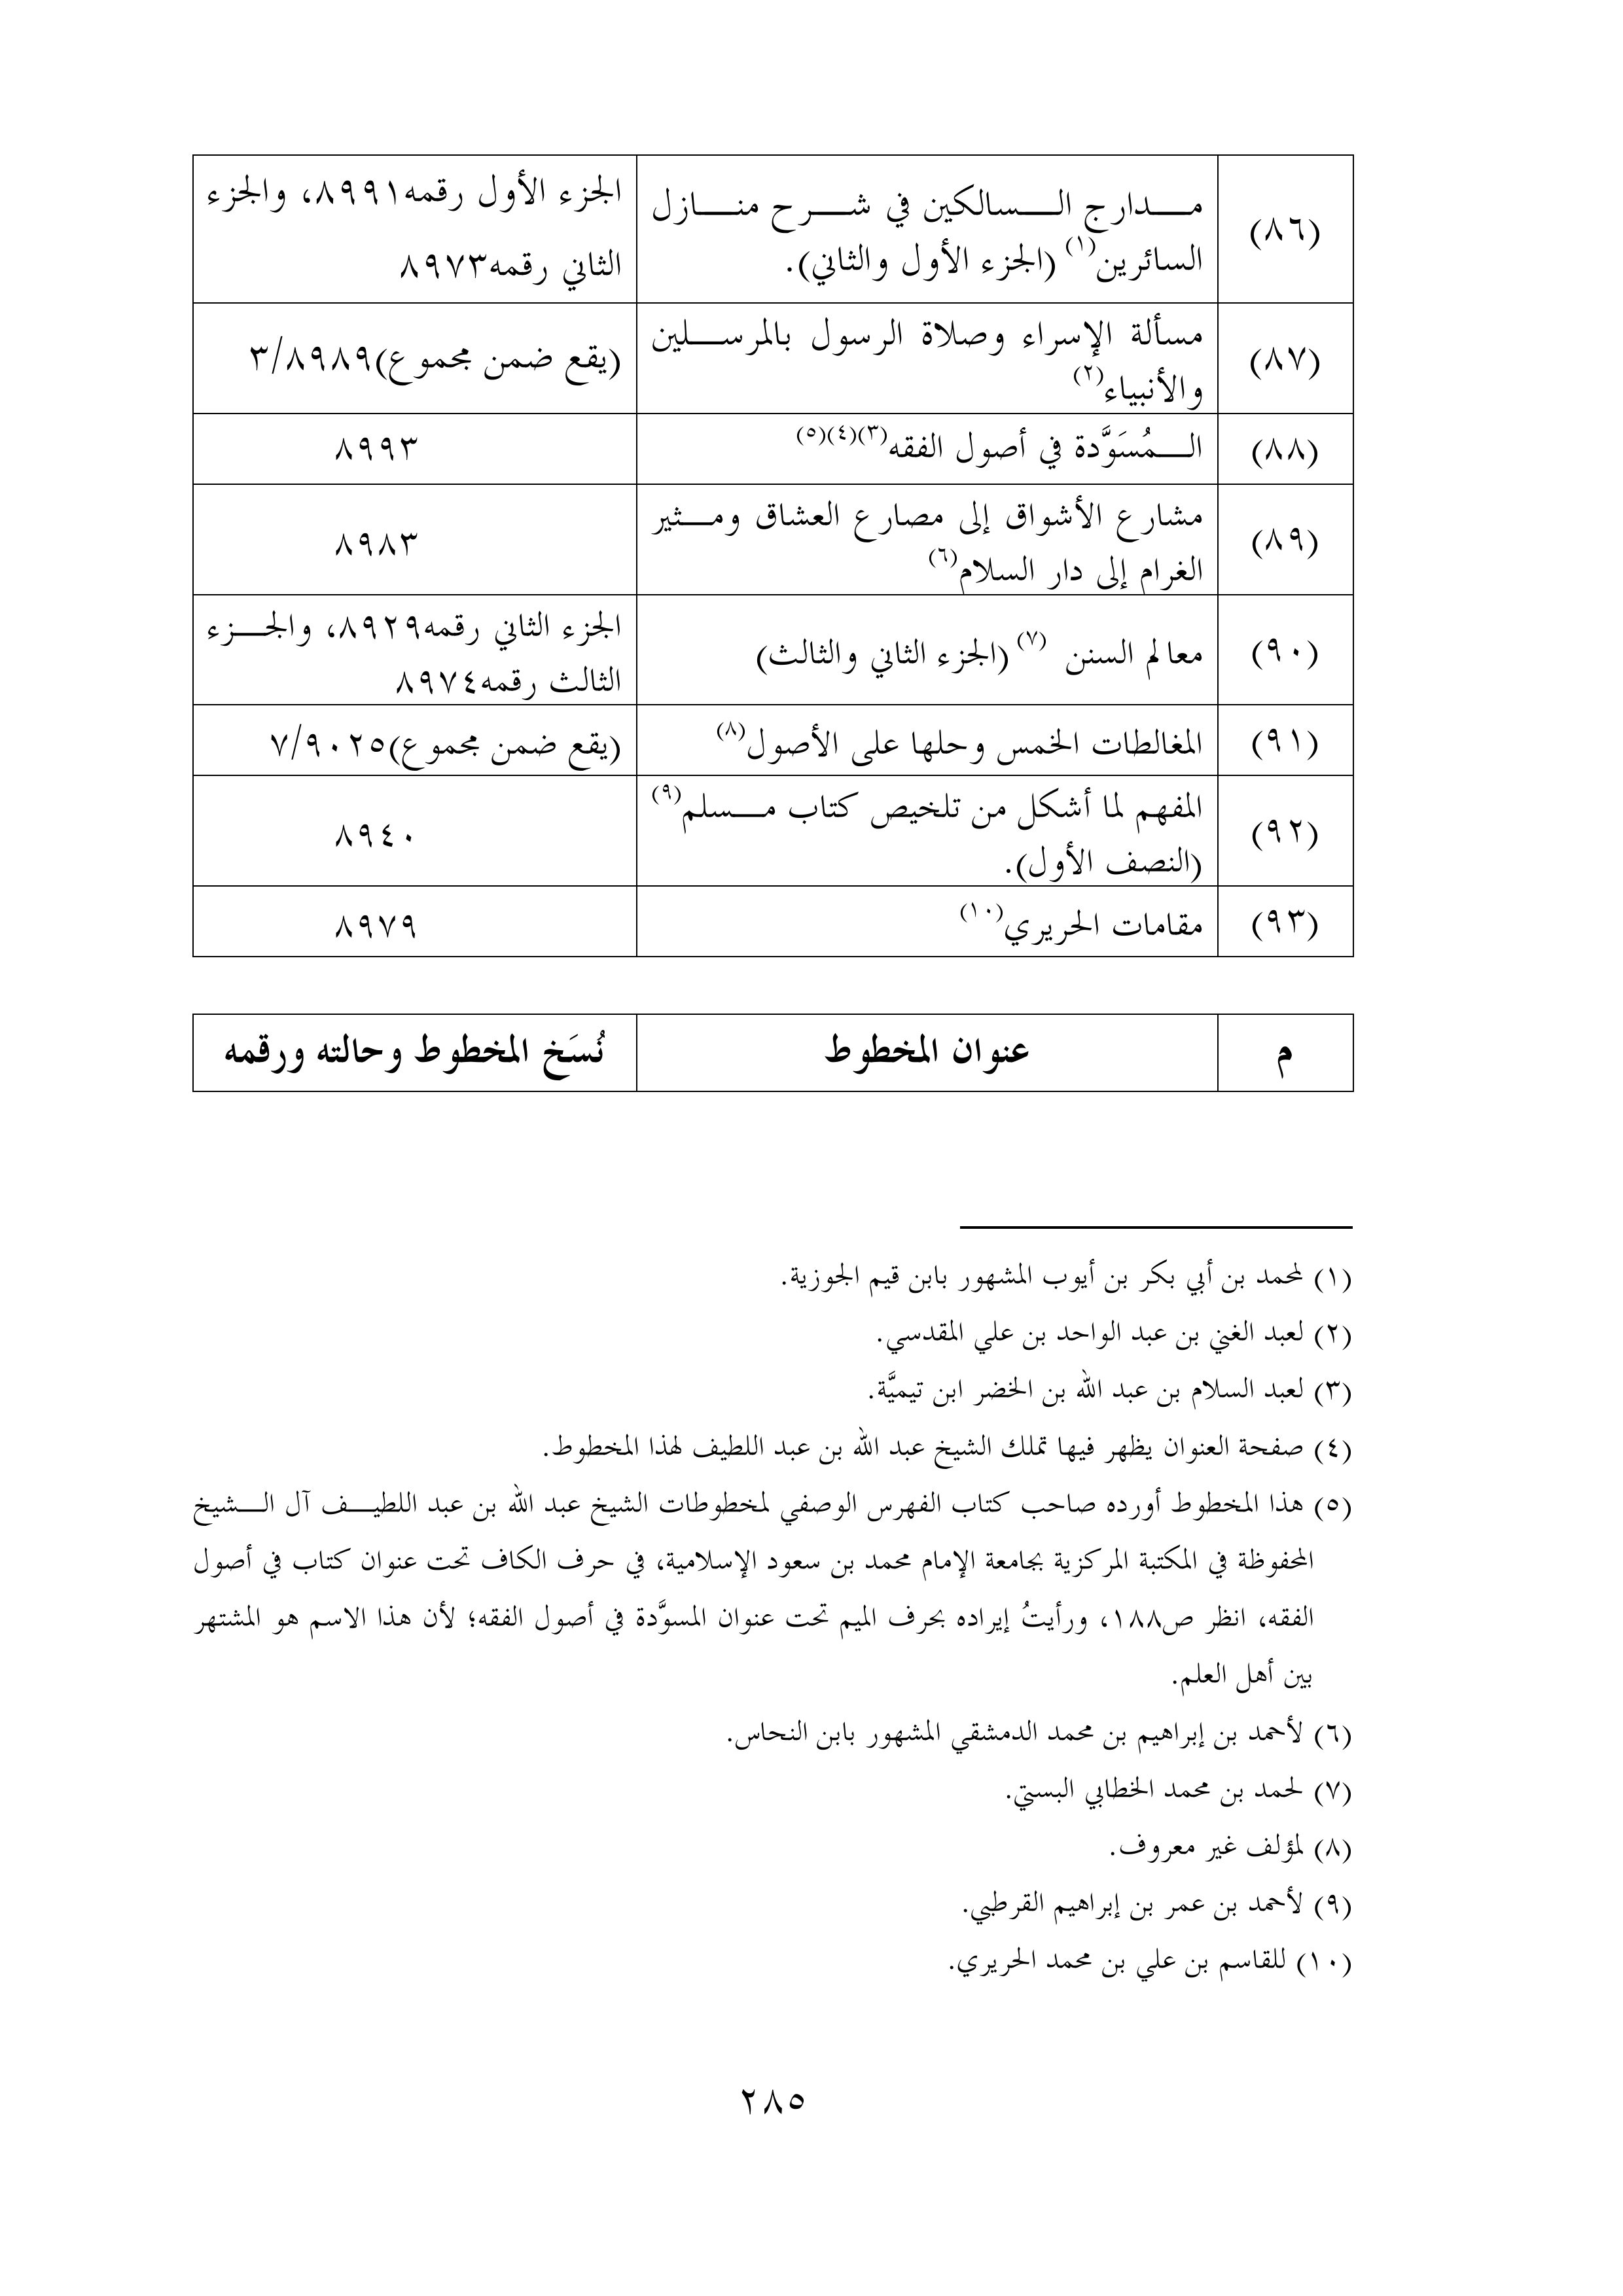 (٨٦)
مدارج السالكين في شرح منازل
السائرين(١) (الجزء الأول والثاني).
الجزء الأول رقمه٨٩٩١، والجزء
الثاني رقمه٨٩٧٣
(٨٧)
مسألة الإسراء وصلاة الرسول بالمرسلين
والأنبياء(٢)
(يقع ضمن مجموع)٣/٨٩٨٩
(٨٨)
الـمُسَوَّدة في أصول الفقه(٣)(٤)(٥)
٨٩٩٣
(٨٩)
مشارع الأشواق إلى مصارع العشاق ومثير
الغرام إلى دار السلام(٦)
٨٩٨٣
(٩٠)
معالم السنن (٧) (الجزء الثاني والثالث)
الجزء الثاني رقمه٨٩٢٩، والجزء
الثالث رقمه٨٩٧٤
(٩١)
المغالطات الخمس وحلها على الأصول(٨)
(يقع ضمن مجموع)٧/٩٠٢٥
(٩٢)
المفهم لما أشكل من تلخيص كتاب مسلم(٩)
(النصف الأول).
٨٩٤٠
(٩٣)
مقامات الحريري(١٠)
٨٩٧٩
م
عنوان المخطوط
نُسَخ المخطوط وحالته ورقمه
(١) لمحمد بن أبي بكر بن أيوب المشهور بابن قيم الجوزية.
(٢) لعبد الغني بن عبد الواحد بن علي المقدسي.
(٣) لعبد السلام بن عبد الله بن الخضر ابن تيميَّة.
(٤) صفحة العنوان يظهر فيها تملك الشيخ عبد الله بن عبد اللطيف لهذا المخطوط.
(٥) هذا المخطوط أورده صاحب كتاب الفهرس الوصفي لمخطوطات الشيخ عبد الله بن عبد اللطيف آل الشيخ
المحفوظة في المكتبة المركزية بجامعة الإمام محمد بن سعود الإسلامية، في حرف الكاف تحت عنوان كتاب في أصول
الفقه، انظر ص١٨٨، ورأيتُ إيراده بحرف الميم تحت عنوان المسوَّدة في أصول الفقه؛ لأن هذا الاسم هو المشتهر
بين أهل العلم.
(٦) لأحمد بن إبراهيم بن محمد الدمشقي المشهور بابن النحاس.
(٧) لحمد بن محمد الخطابي البستي.
(٨) لمؤلف غير معروف.
(٩) لأحمد بن عمر بن إبراهيم القرطبي.
(١٠) للقاسم بن علي بن محمد الحريري.
٢٨٥